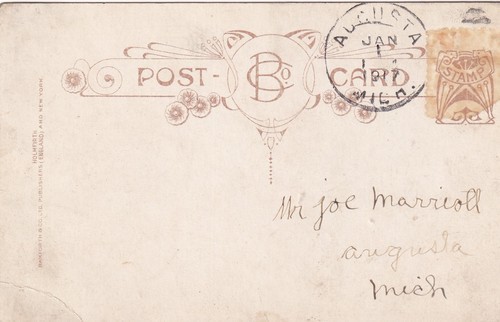 POST-
B Co.
CARD
AUGUSTA
JAN
1
1917
MICH.
STAMP
BAMFORTH & CO. LTD. PUBLISHERS
HOLMFIRTH (ENGLAND) AND NEW YORK
Mr Joe Marriott
augusta
Mich